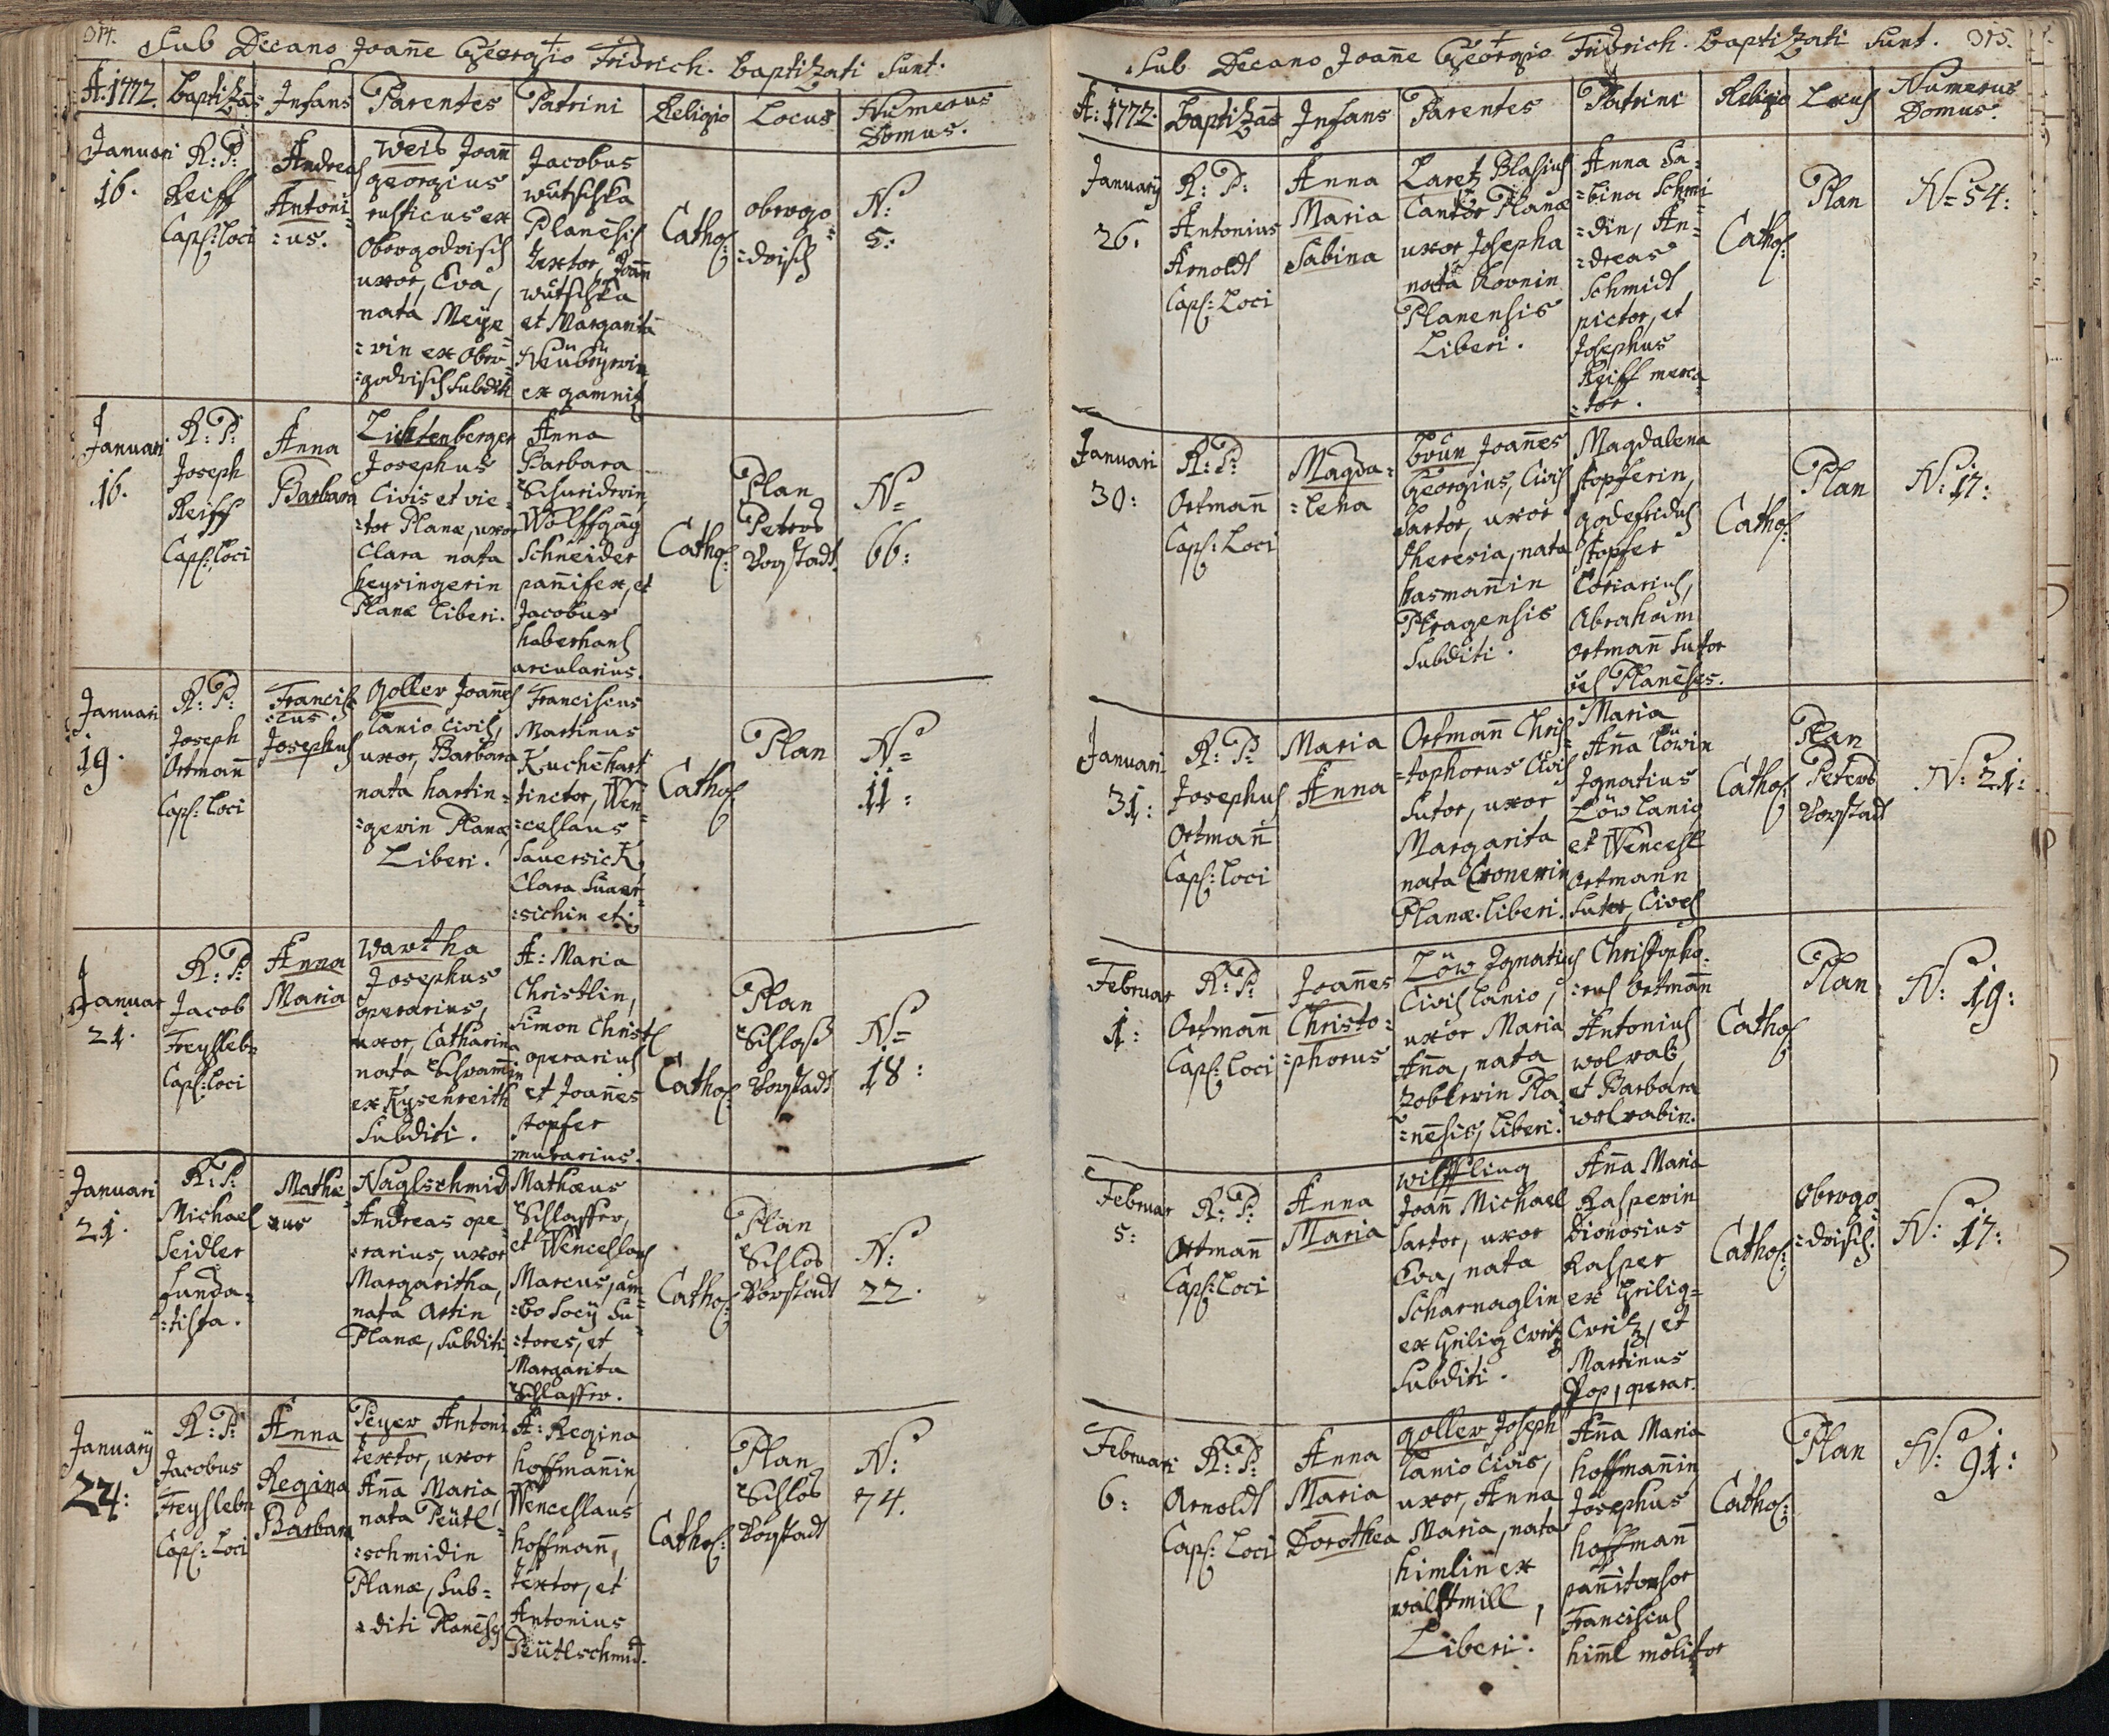 314.
Sub Decano Joanne Georgio Fridrich. baptizati Sunt.
A: 1772. baptizans Infans Parentes Patrini Religio Locus Numerus Domus.
Januari
16.
R: P:
Reiff
Capl: Loci
Andreas
Antoni
=us.
Weis Joan
georgius
rusticus ex
Obergodrisch
uxor, Eva,
nata Meÿe
=rin ex Ober
=godrisch Subditi
Jacobus
wutschka
Planensis
Textor, Joan
wutschka
et Margarita
Neubÿrin
ex gamnitz
Cathol:
obergo
=drisch
N:
5:
Januari
16.
R: P:
Joseph
Reiff
Capl: Loci
Anna
Barbara
Lichtenberger
Josephus
Civis et vie=
=tor Planæ, uxor
Clara nata
heÿsingerin
Planæ Liberi.
Anna
Barbara
Schneiderin,
Wolffgang
Schneider
pannifex, et
Jacobus
haberhansl
arcularius.
Cathol:
Plan
Peters
Vorstadt.
N=
66:
Januari
19.
R: P:
Joseph
Ortmann
Capl: Loci
Francis=
=cus
Josephus
Goller Joannes
Lanio Civis,
uxor, Barbara
nata hartin=
=gerin Planæ,
Liberi.
Franciscus
Martinus
Kuchehart
tinctor, Wen
=ceslaus
Sauersick
Clara Sauer
=sichin et:
Cathol:
Plan
N=
11:
Januar
21.
R: P:
Jacob
Freÿsleb=
Capl: Loci
Anna
Maria
Wartha
Josephus
operarius,
uxor, Catharina
nata Schramin
ex Kÿsenreith
Subditi.
A: Maria
Christlin,
Simon Christl
operarius
et Joannes
Stopfer
murarius.
Cathol:
Plan
Schloß
Vorstadt
N=
18:
Januari
21.
R: P:
Michael
Seidler
funda=
=tista.
Mathæ
=us
Naglschmid
Andreas ope
=rarius, uxor
Margaritha,
nata Artin
Planæ, Subditi
Mathæus
Schlaffer,
et Wenceslaus
Marcus, am
=bo Socÿ Su
=tores, et
Margarita
Schlaffer.
Cathol:
Plan
Schlos
Vorstadt
N:
22.
Januarÿ
24:
R: P:
Jacobus
Freÿslebn
Capl: Loci
Anna
Regina
Barbara
Peÿer Antoni
Textor, uxor
Anna Maria,
nata Peütl=
=schmidin
Planæ, Sub=
=diti Planensis
A: Regina
hoffmannin,
Wenceslaus
hoffmann,
Textor, et
Antonius
Peütlschmid.
Cathol:
Plan
Schlos
Vorstadt
N:
74.
Sub Decano Joanne Georgio Fridrich. baptizati Sunt. 315.
A: 1772. Baptizans Infans Parentes Patrini Religio Locus Numerus Domus.
Januarÿ
26.
R: P:
Antonius
Arnoldt
Capl: Loci
Anna
Maria
Sabina
Laretz Blasius
Cantor Planæ
uxor Josepha
nata
Planensis
Liberi.
Anna Sa=
=bina Schmi
=din, An=
=dreas
Schmidt
pictor, et
Josephus
Reiff merca
=tor.
Cathol:
Plan
N= 54:
Januari
30:
R: P:
Ortmann
Capl: Loci
Magda=
=lena
Joannes
Georgius, Civis
Sartor, uxor
theresia, nata
hasmannin
Pragensis
Subditi.
Magdalena
stopferin,
godefridus
stopfer
Coriarius,
Abraham
Ortmann Sutor
Planenses.
Cathol:
Plan
N: 17:
Januari
31:
R: P:
Josephus
Ortmann
Capl: Loci
Maria
Anna
Ortmann Chris
=tophorus Civis
Sutor, uxor
Margarita
nata Cronerin
Planæ. Liberi.
Maria
Anna Löwin
Ignatius
Löw Lanio
et Wencesl
Ortmann
Sutor, Cives
Cathol:
Plan
Peters
Vorstadt
N: 21:
Februar
1:
R: P:
Ortmann
Capl: Loci
Joannes
Christo=
=phorus
Löw Ignatius
Civis Lanio,
uxor Maria
Anna, nata
Pla
=nensis, Liberi.
Christopho=
=rus Ortmann
Antonius
wolrab,
et Barbara
wolrabin.
Cathol
Plan
N: 19:
Februar
5:
R: P:
Ortmann
Capl: Loci
Anna
Maria
Wilffling
Joann Michael
Sartor, uxor
Eva, nata
Scharnaglin
ex heilig Creitz
Subditi.
Anna Maria
Rasperin
Dionosius
Rasper
ex heilig=
Creitz, et
Martinus
Pop, operar.
Cathol:
Obergo
=drisch.
N: 17:
Februari
6:
R: P:
Arnoldt
Capl: Loci
Anna
Maria
Dorothea
goller Joseph
Lanio Civis,
uxor, Anna
Maria, nata
himlin ex
walstmill,
Liberi.
Anna Maria
hoffmannin
Josephus
hoffmann
pannitonsor
Franciscus
himl molitor
Cathol:
Plan
N: 91: